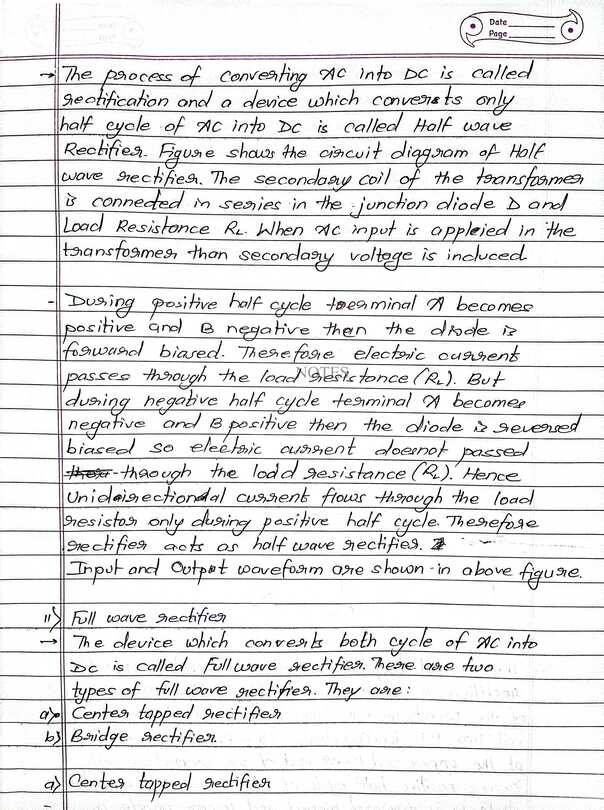 Date
Page
→ The process of converting AC into DC is called
rectification and a device which converts only
half cycle of AC into DC is called Half wave
Rectifier. Figure shows the circuit diagram of Half
wave rectifier. The secondary coil of the transformer
is connected in series in the junction diode D and
Load Resistance RL. When AC input is appleied in the
transformer than secondary voltage is included.
- During positive half cycle terminal A becomes
positive and B negative then the diode is
forward biased. Therefore electric current
NOTES
passes through the load resistance (RL). But
during negative half cycle terminal A becomes
negative and B positive then the diode is reversed
biased so electric current doesnot passed
through the load resistance (RL). Hence
Unidirectional current flows through the load
resistor only during positive half cycle. Therefore
rectifier acts as half wave rectifier.
Input and Output waveform are shown in above figure.
ii) Full wave rectifier
→ The device which converts both cycle of AC into
DC is called Full wave rectifier. There are two
types of full wave rectifier. They are:
a) Center tapped rectifier
b) Bridge rectifier.
a) Center tapped rectifier